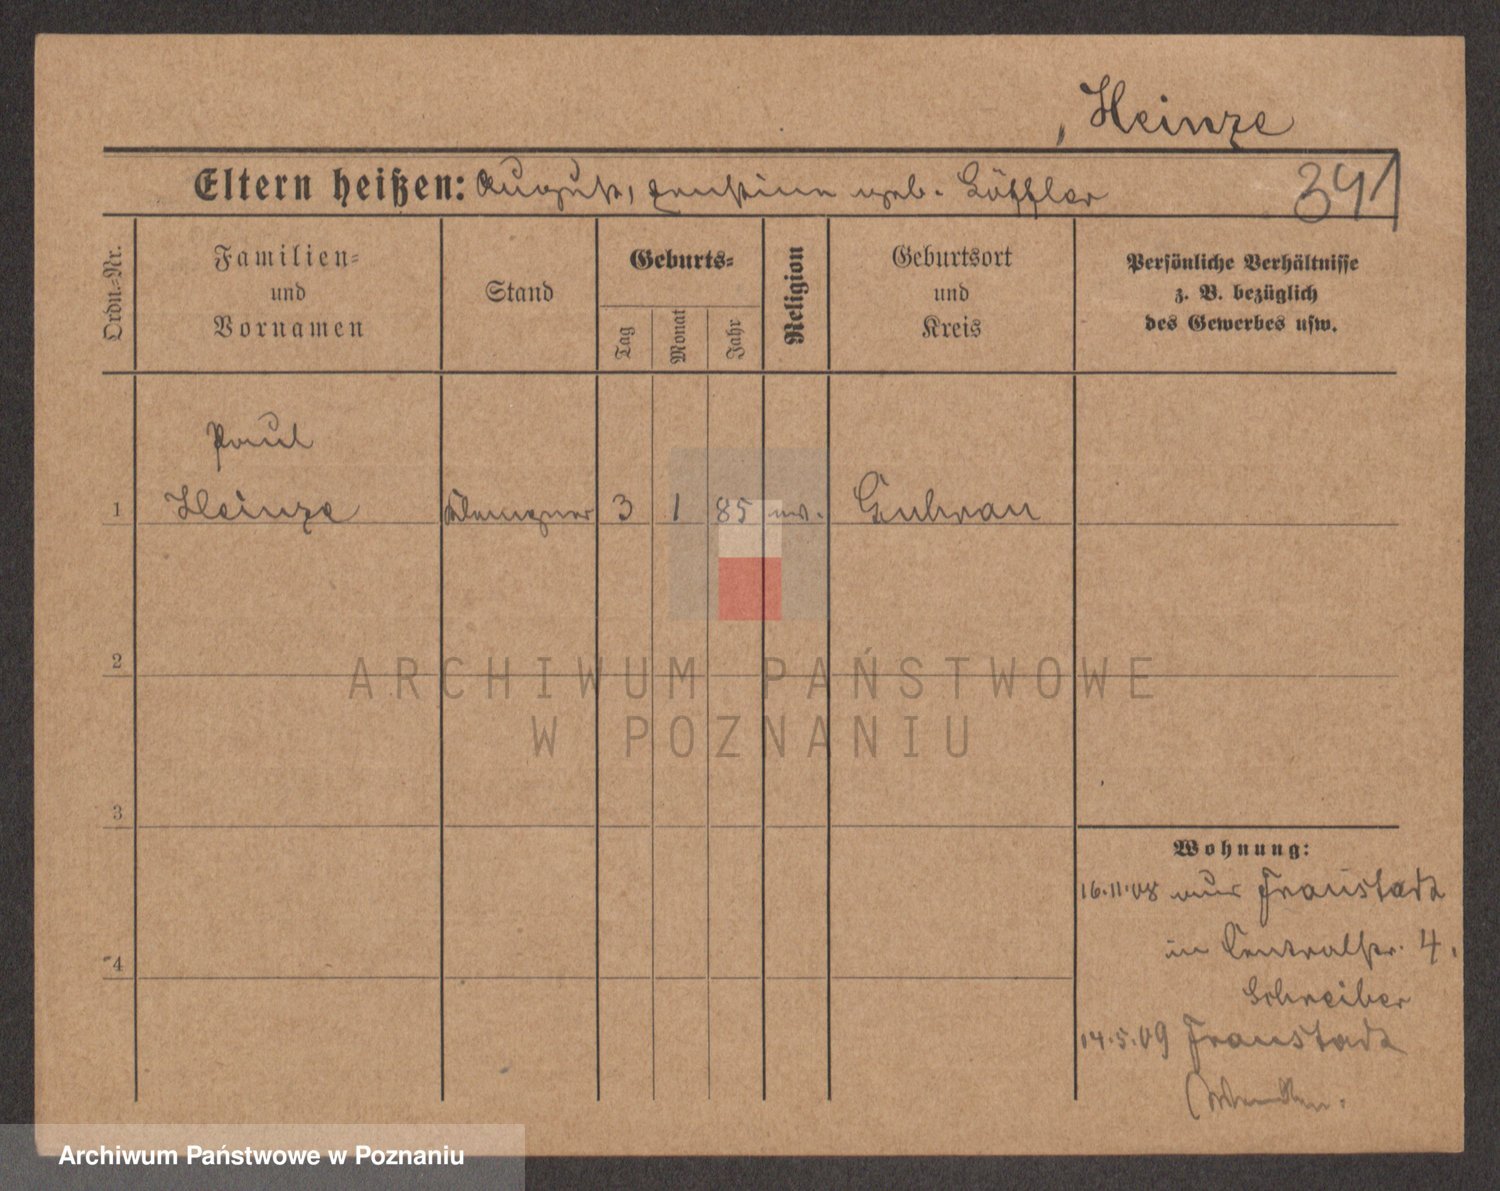 Heinze
Eltern heißen: August, Ernstine geb. Löffler
341
Ordn.-Nr.
Familien-
und
Vornamen
Stand
Geburts-
Tag
Monat
Jahr
Religion
Geburtsort
und
Kreis
Persönliche Verhältnisse
z. B. bezüglich
des Gewerbes usw.
Paul
1 Heinze Klempner 3 1 85 ev. Guhrau
2
3
4
Wohnung:
16.11.08 aus Fraustadt
in Centralstr. 4.
Schreiber
14.5.09 Fraustadt
ARCHIWUM PAŃSTWOWE
W POZNANIU
Archiwum Państwowe w Poznaniu